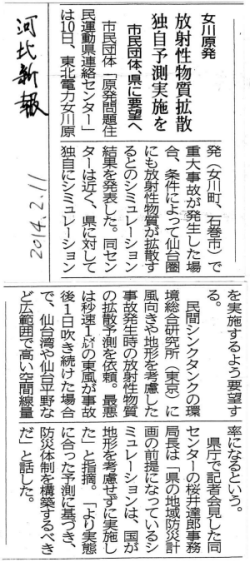 女川原発
放射性物質拡散
独自予測実施を
市民団体 県に要望へ
市民団体「原発問題住
民運動県連絡センター」
は10日、東北電力女川原
発（女川町、石巻市）で
重大事故が発生した場
合、条件によって仙台圏
にも放射性物質が拡散す
るとのシミュレーション
結果を発表した。同セン
ターは近く、県に対して
独自にシミュレーション
を実施するよう要望す
る。
民間シンクタンクの環
境総合研究所（東京）に
風向きや地形を考慮した
事故発生時の放射性物質
の拡散予測を依頼。最悪
は秒速1㍍の東風が事故
後1日吹き続けた場合
で、仙台湾や仙台平野な
ど広範囲で高い空間線量
率になるという。
県庁で記者会見した同
センターの桜井達郎事務
局長は「県の地域防災計
画の前提になっているシ
ミュレーションは、国が
地形を考慮せずに実施し
た」と指摘。「より実態
に合った予測に基づき、
防災体制を構築するべき
だ」と話した。
河北新報
2014.2.11